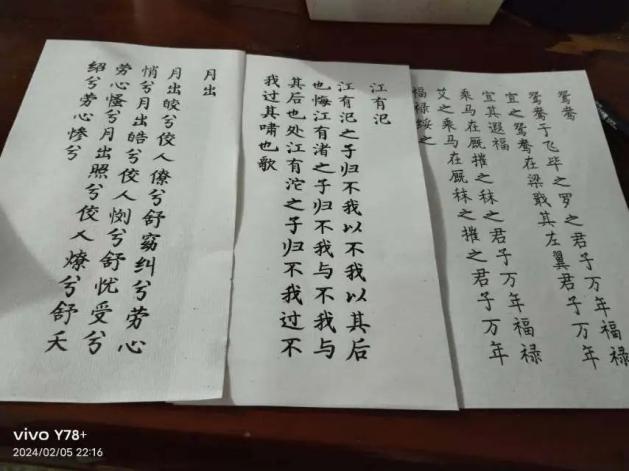 鸳鸯
鸳鸯于飞毕之罗之君子万年福禄
宜之鸳鸯在梁戢其左翼君子万年
宜其遐福
乘马在厩摧之秣之君子万年福禄
艾之乘马在厩秣之摧之君子万年
福禄绥之
江有汜
江有汜之子归不我以不我以其后
也悔江有渚之子归不我与不我与
其后也处江有沱之子归不我过不
我过其啸也歌
月出
月出皎兮佼人僚兮舒窈纠兮劳心
悄兮月出皓兮佼人懰兮舒忧受兮
劳心慅兮月出照兮佼人燎兮舒夭
绍兮劳心惨兮
vivo Y78+
2024/02/05 22:16